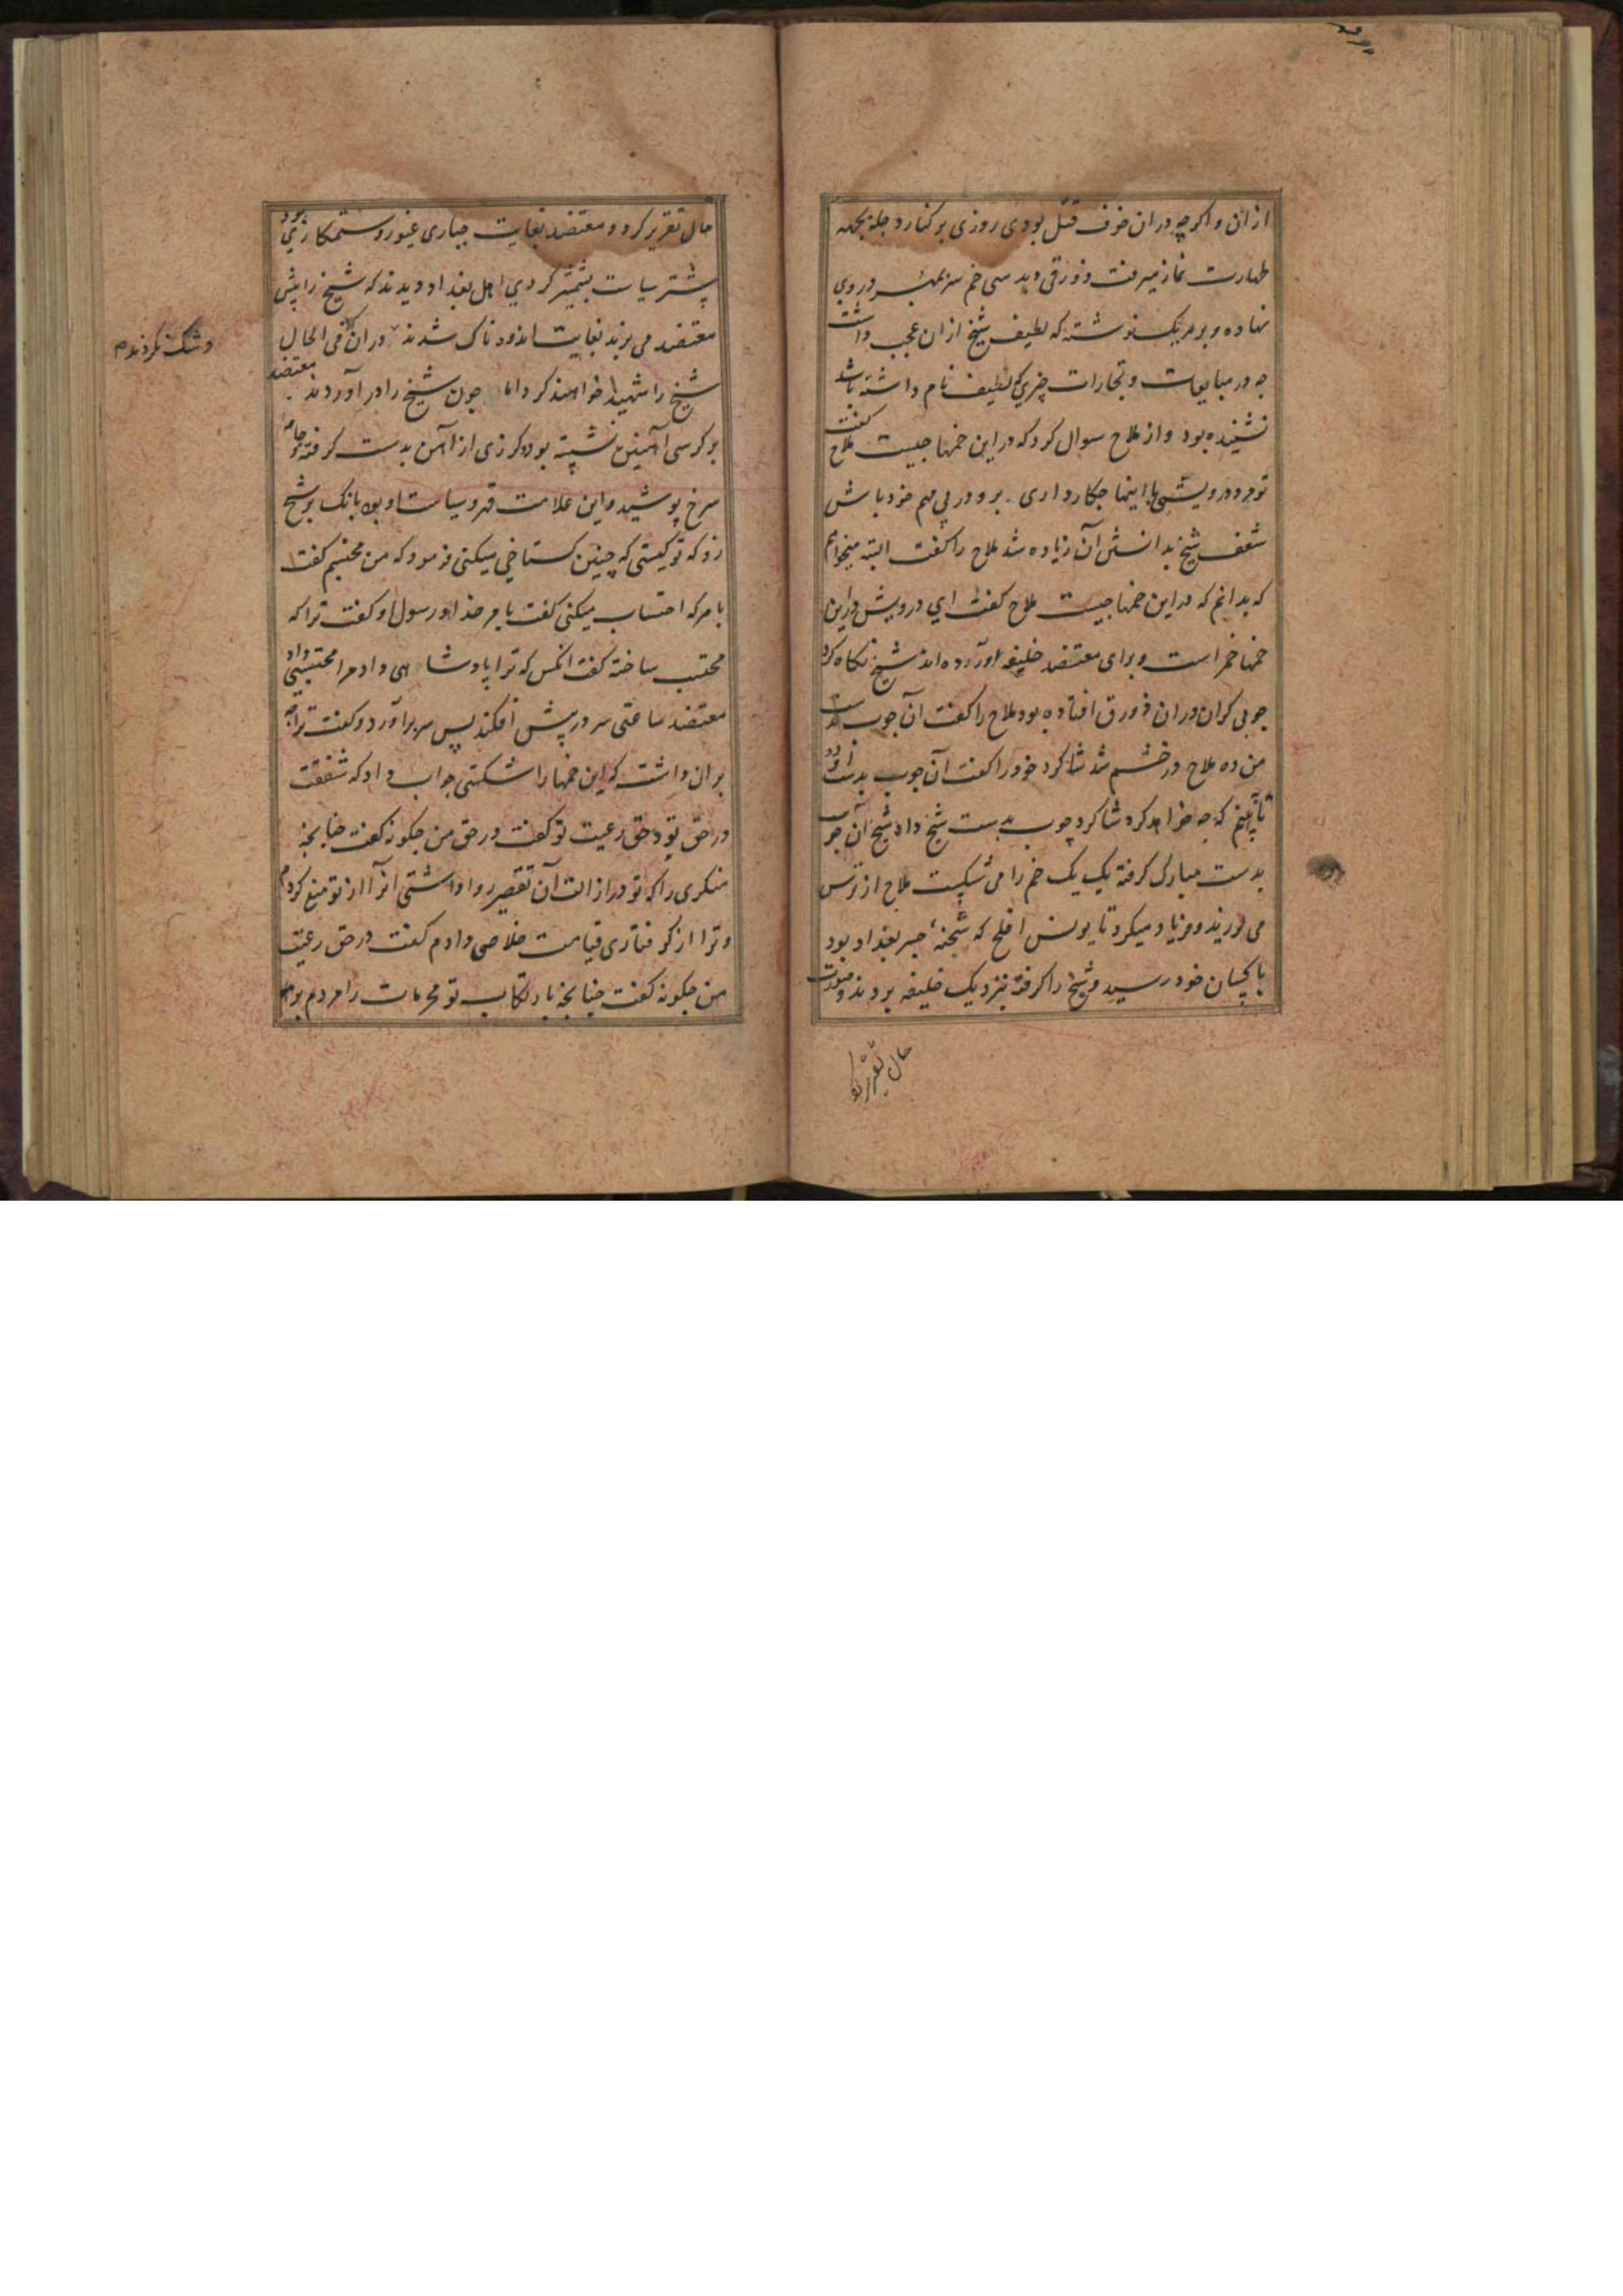 ازان و اکرچه دران خوف قتل بودی روزی بر کنار دجله بجهه
طهارت نماز میرفت و زورقی دید سی خم سر بمهر در وی
نهاده و بر هر یک نوشته که لطیف شیخ ازان عجب داشت
چه در مبایعات و تجارات چیزی که لطیف نام داشته باشد
نشنیده بود و از ملاح سوال کرد که در این خمها چیست ملاح کفت
تو مرد درویشی با اینها چکار داری برو در پی مهم خود باش
شعف شیخ بدانستن آن زیاده شد ملاح را کفت البته میخواهم
که بدانم که در این خمها چیست ملاح کفت ای درویش در این
خمها خمر است و برای معتضد خلیفه آورده اند شیخ نکاه کرد
چوبی کران دران زورق افتاده بود ملاح را کفت آن چوب بدست
من ده ملاح در خشم شد شاکرد خود را کفت آن چوب بدست او ده
تا ببینم که چه خواهد کرد شاکرد چوب بدست شیخ داد شیخ آن چوب
بدست مبارک کرفته یک یک خم را می شکست ملاح از ترس
می لرزید و فریاد میکرد تا یونس افلح که شحنهٔ جسر بغداد بود
با کسان خود رسید و شیخ را کرفته نزدیک خلیفه بردند و صورت
حال تقریر کرد
حال تقریر کرد و معتضد بغایت جباری غیور و ستمکار بود
پیشتر سیاست بشمشیر کردی اهل بغداد دیدند که شیخ را پیش
معتضد می برند بغایت اندوه ناک شدند دران که فی الحال
و شک نکردند
شیخ را شهید خواهند کرد اما چون شیخ را در آوردند معتضد
بر کرسی آهنین نشسته بود و کرزی از آهن بدست کرفته و جامه
سرخ پوشیده و این علامت قهر و سیاست او بود بانک بر شیخ
زد که تو کیستی که چنین کستاخی میکنی فرمود که من محتسبم کفت
بامر که احتساب میکنی کفت بامر خدا و رسول او کفت ترا که
محتسب ساخته کفت انکس که ترا پادشاهی داد مرا محتسبی داد
معتضد ساعتی سر در پیش افکند پس سر بر آورد و کفت ترا چه
بران داشت که این خمها را شکستی جواب داد که شفقت
در حق تو و حق رعیت تو کفت در حق من چکونه کفت چنانچه
منکری را که تو در ازالت آن تقصیر روا داشتی آنرا از تو منع کردم
و ترا از کرفتاری قیامت خلاصی دادم کفت در حق رعیت
من چکونه کفت چنانچه بارتکاب تو محرمات را مردم